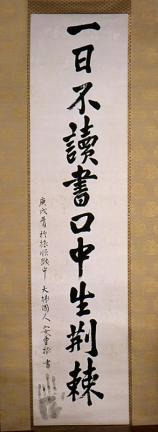 一日不讀書口中生荆棘
庚戌三月於旅順獄中 大韓國人 安重根 書